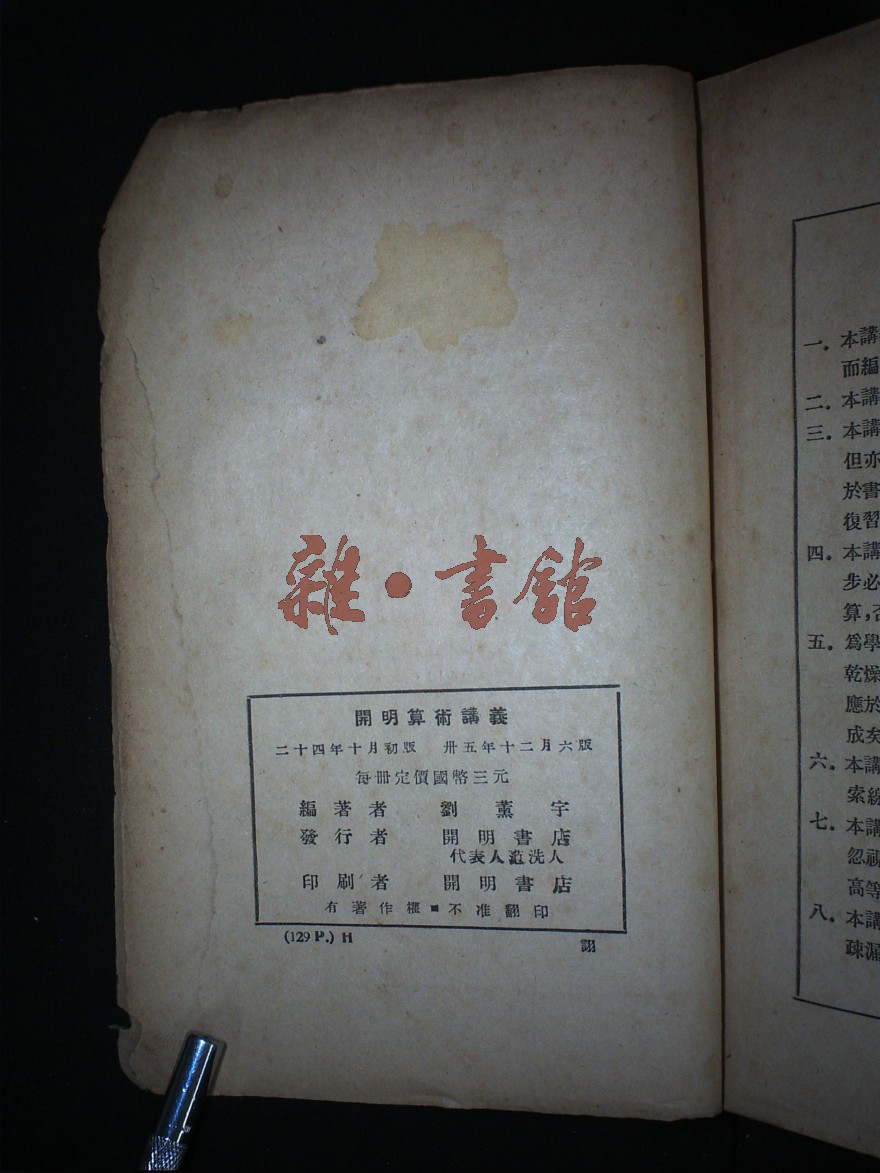 雜·書館
開明算術講義
二十四年十月初版 卅五年十二月六版
每冊定價國幣三元
編著者 劉薰宇
發行者 開明書店
代表人范洗人
印刷者 開明書店
有著作權■不准翻印
(129 P.) H
一. 本講
而編
二. 本講
三. 本講
但亦
於書
復習
四. 本講
步必
算,否
五. 爲學
乾燥
應於
成矣
六. 本講
索線
七. 本講
忽視
高等
八. 本講
疎漏